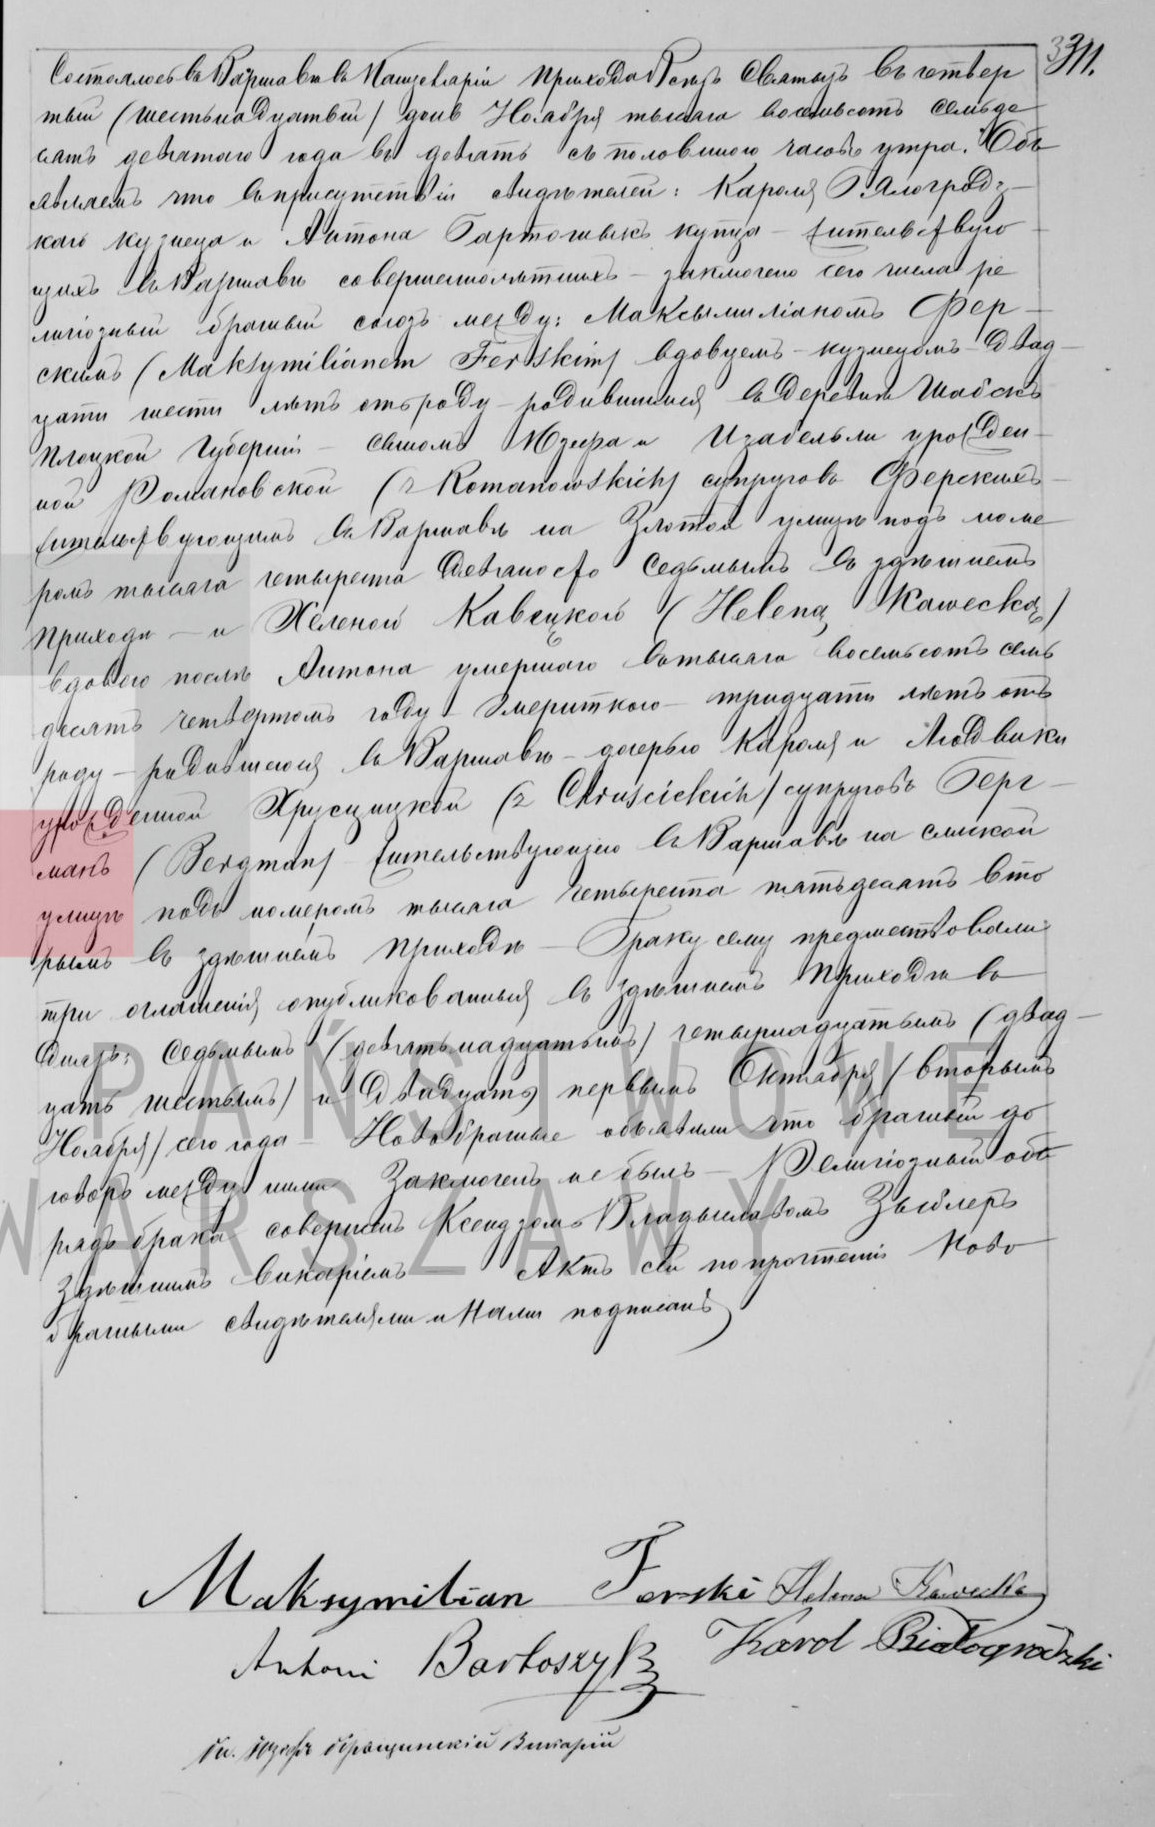 311.
Состоялось въ Варшавѣ въ Канцеляріи прихода Всѣхъ Святыхъ въ четвер
тый (шестьнадцатый) день Ноября тысяча восемьсотъ семьде
сятъ девятаго года въ девять съ половиною часовъ утра. Объ
являемъ что въ присутствіи свидѣтелей: Кароля Бялогродз
каго кузнеца и Антона Бартошыкъ купца – жительствую
щихъ въ Варшавѣ совершеннолѣтнихъ – заключено сего числа ре
лигіозный брачный союзъ между: Максымиліаномъ Фер –
скимъ (Maksymilianem Ferskim) вдовцемъ – кузнецомъ – двад –
цати шести лѣтъ отъ роду – родившимся въ деревни
Плоцкой Губерніи – сыномъ Юзефа и Изабеллы урожден –
ной Романовской (z Romanowskich) супруговъ Ферскихъ –
жительствующимъ въ Варшавѣ на Злотой улицѣ подъ номе
ромъ тысяча четыреста девяносто седьмымъ въ здѣшнемъ
приходѣ – и Хеленой Кавецкой (Heleną Kawecką)
вдовою послѣ Антона умершаго въ тысяча восемьсотъ семь
десятъ четвертомъ году – – тридцати лѣтъ отъ
роду – родившеюся въ Варшавѣ – дочерью Кароля и Людвики
урожденной Хрусцицкой (z Chruścickich) супруговъ Берг –
манъ (Bergman) – жительствующею въ Варшавѣ на слиской
улицѣ подъ номеромъ тысяча четыреста пятьдесятъ вто
рымъ въ здѣшнемъ приходѣ – Браку сему предшествовали
три оглашенія опубликованныя въ здѣшнемъ приходѣ въ
дняхъ: седьмымъ (девятьнадцатымъ) четырнадцатымъ (двад –
цать шестымъ) и двадцать первымъ Октября (вторымъ
Ноября) сего года – Новобрачные объявили что брачный до
говоръ между ними заключенъ не былъ – Религіозный об
рядъ брака совершенъ Ксендзомъ Владыславомъ
здѣшнимъ викаріемъ Актъ сей по прочтеніи Ново
брачными свидѣтелями и Нами подписанъ
Maksymilian Ferski Helena Kawecka
Antoni Bartoszyk Karol Białogrodzki
Кс. Юзефъ Викарій
PAŃSTWOWE
WARSZAWY